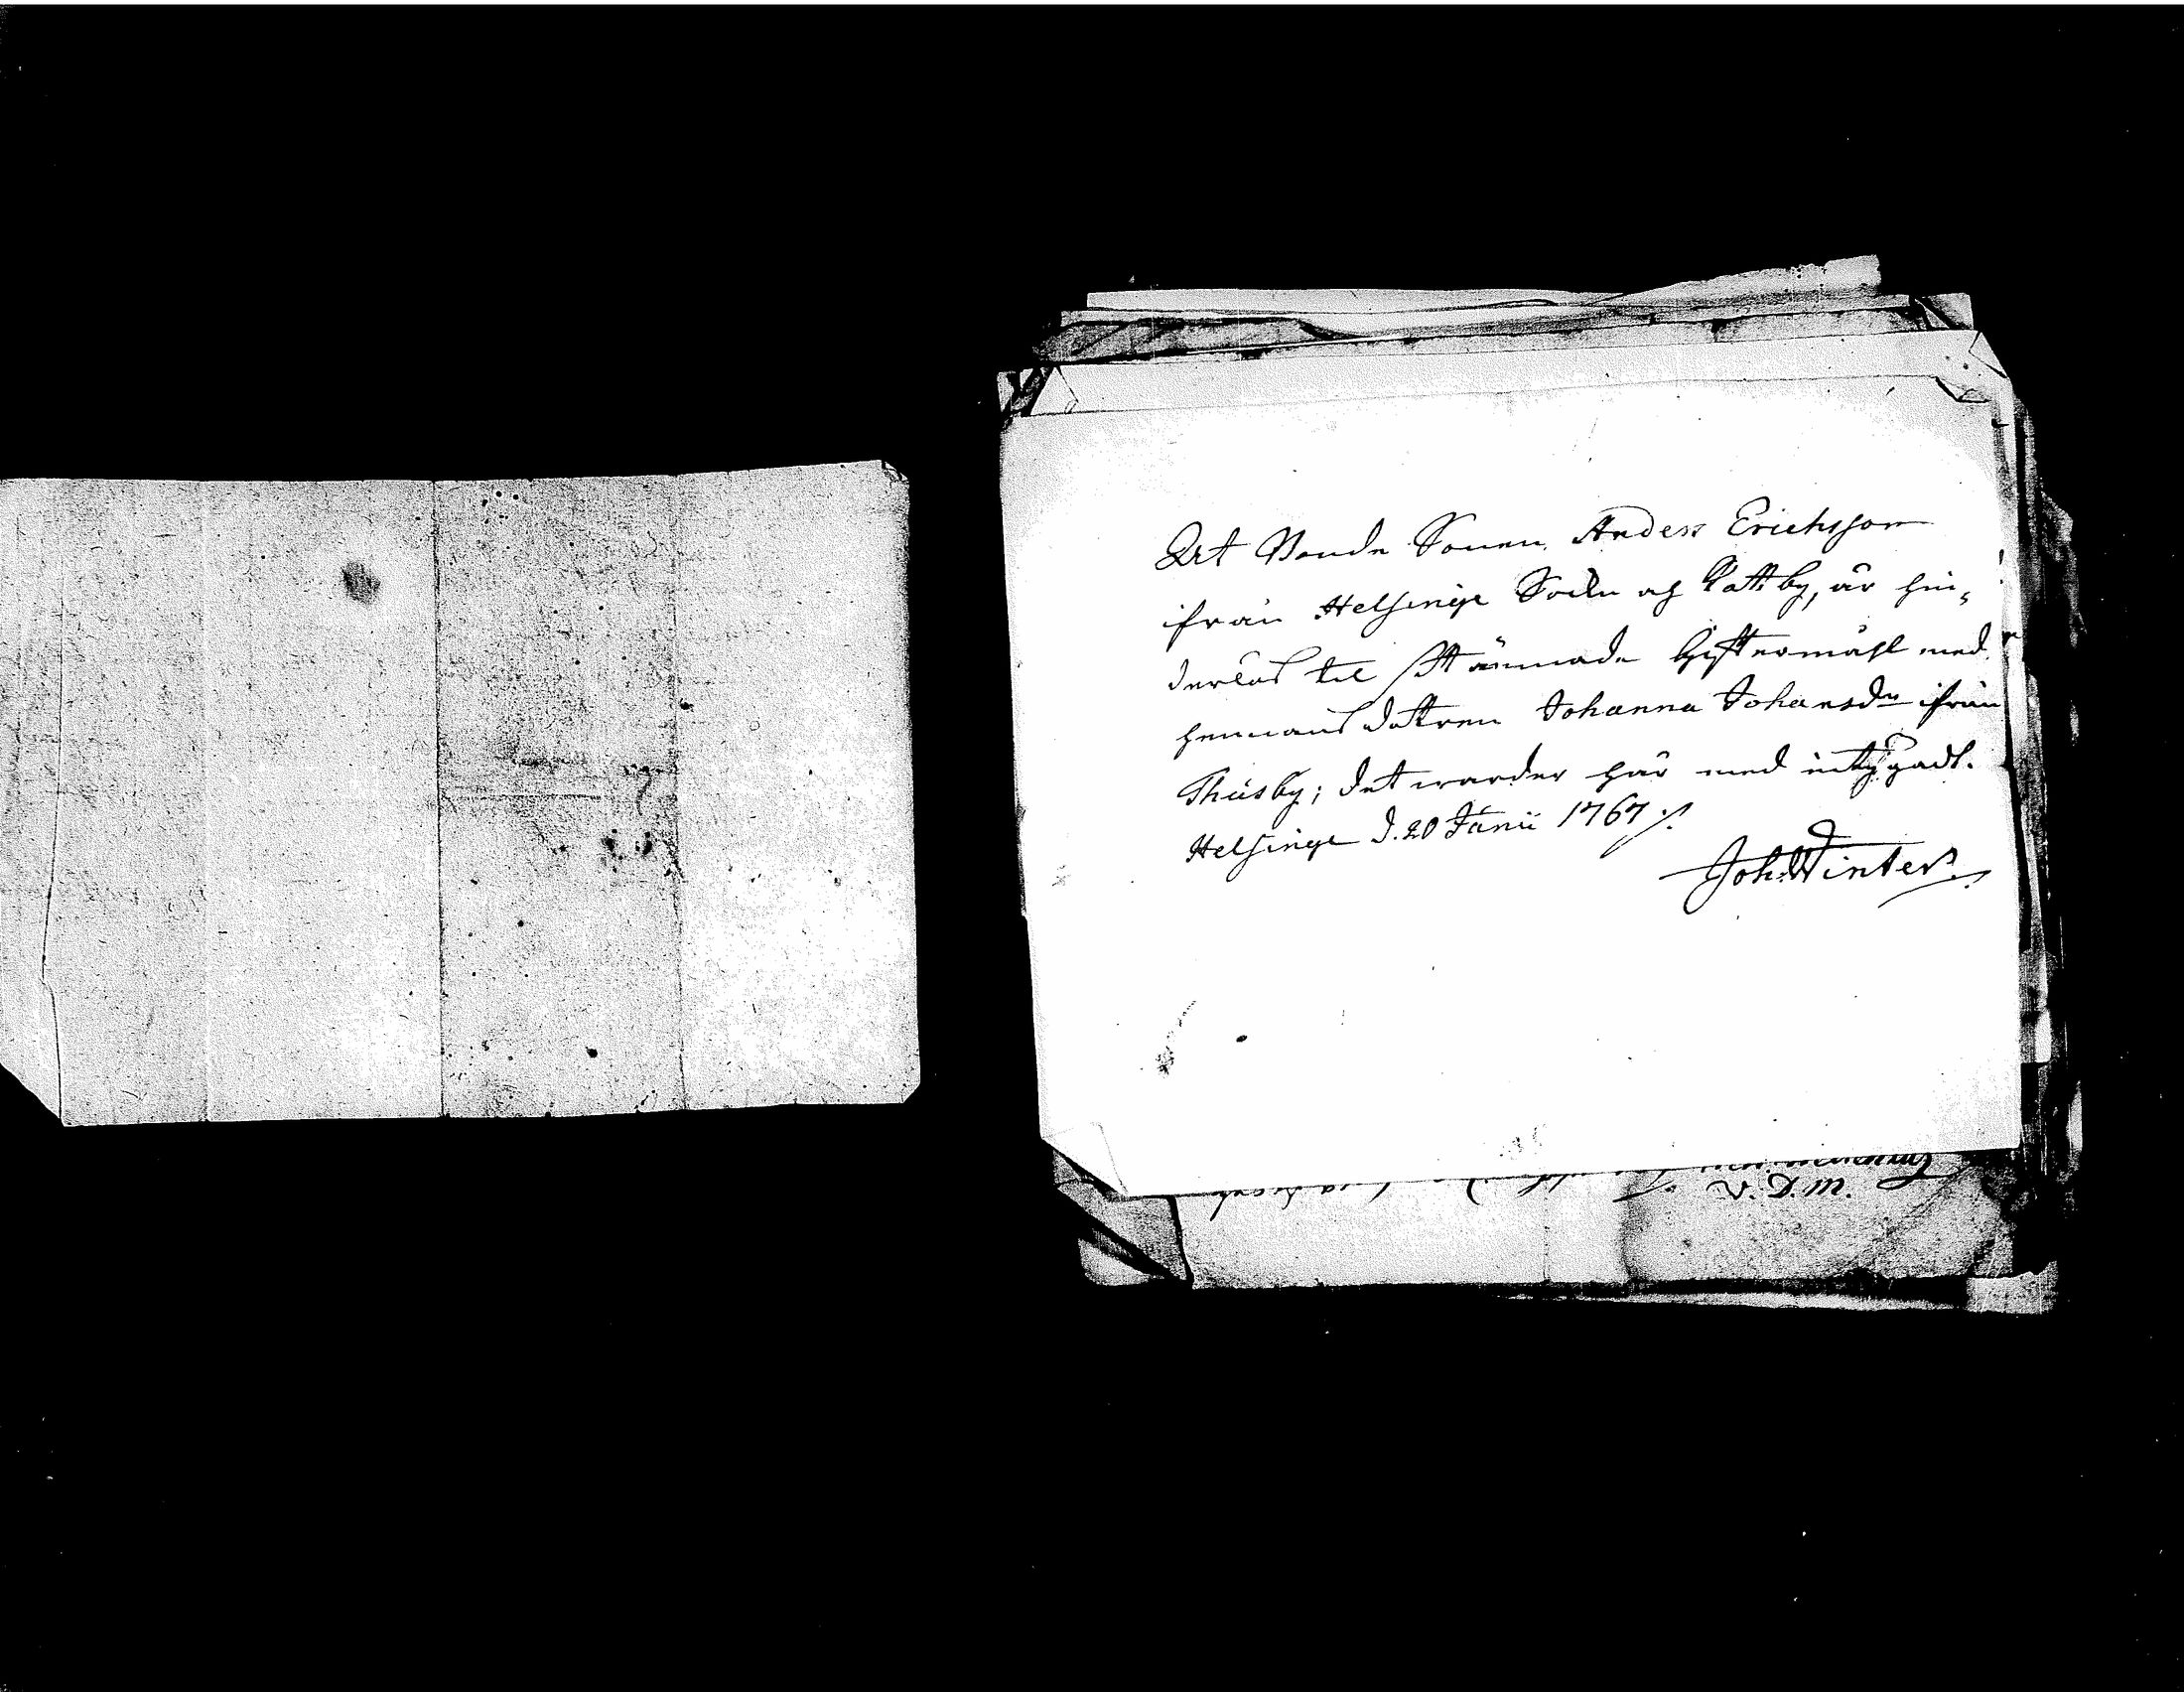 At Bonde Sonen Anders Erichsson
ifrån Helsinge Sockn och Kattby, är hin,
derlös til stämnade Gifftermåhl med
hemmans dottren Johanna Johansdr ifrån
Thusby; det warder här med intÿgadt.
Helsinge d. 20 Junii 1767 ./.
Joh: Winter